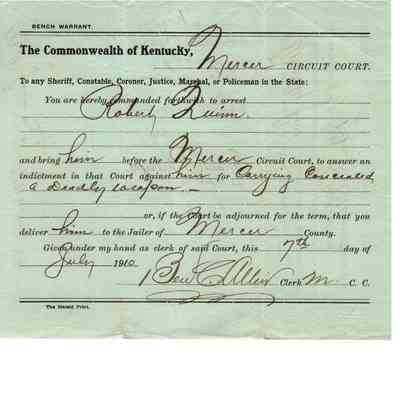 BENCH WARRANT.
The Commonwealth of Kentucky,
Mercer CIRCUIT COURT.
To any Sheriff, Constable, Coroner, Justice, Marshal, or Policeman in the State:
You are hereby commanded forthwith to arrest
Robert Quinn.
and bring him before the Mercer Circuit Court, to answer an
indictment in that Court against him for Carrying Concealed
a Deadly weapon. —
or, if the Court be adjourned for the term, that you
deliver him to the Jailer of Mercer County.
Given under my hand as clerk of said Court, this 7th day of
July 1910. Ben C Allin Clerk M. C. C.
The Herald Print.